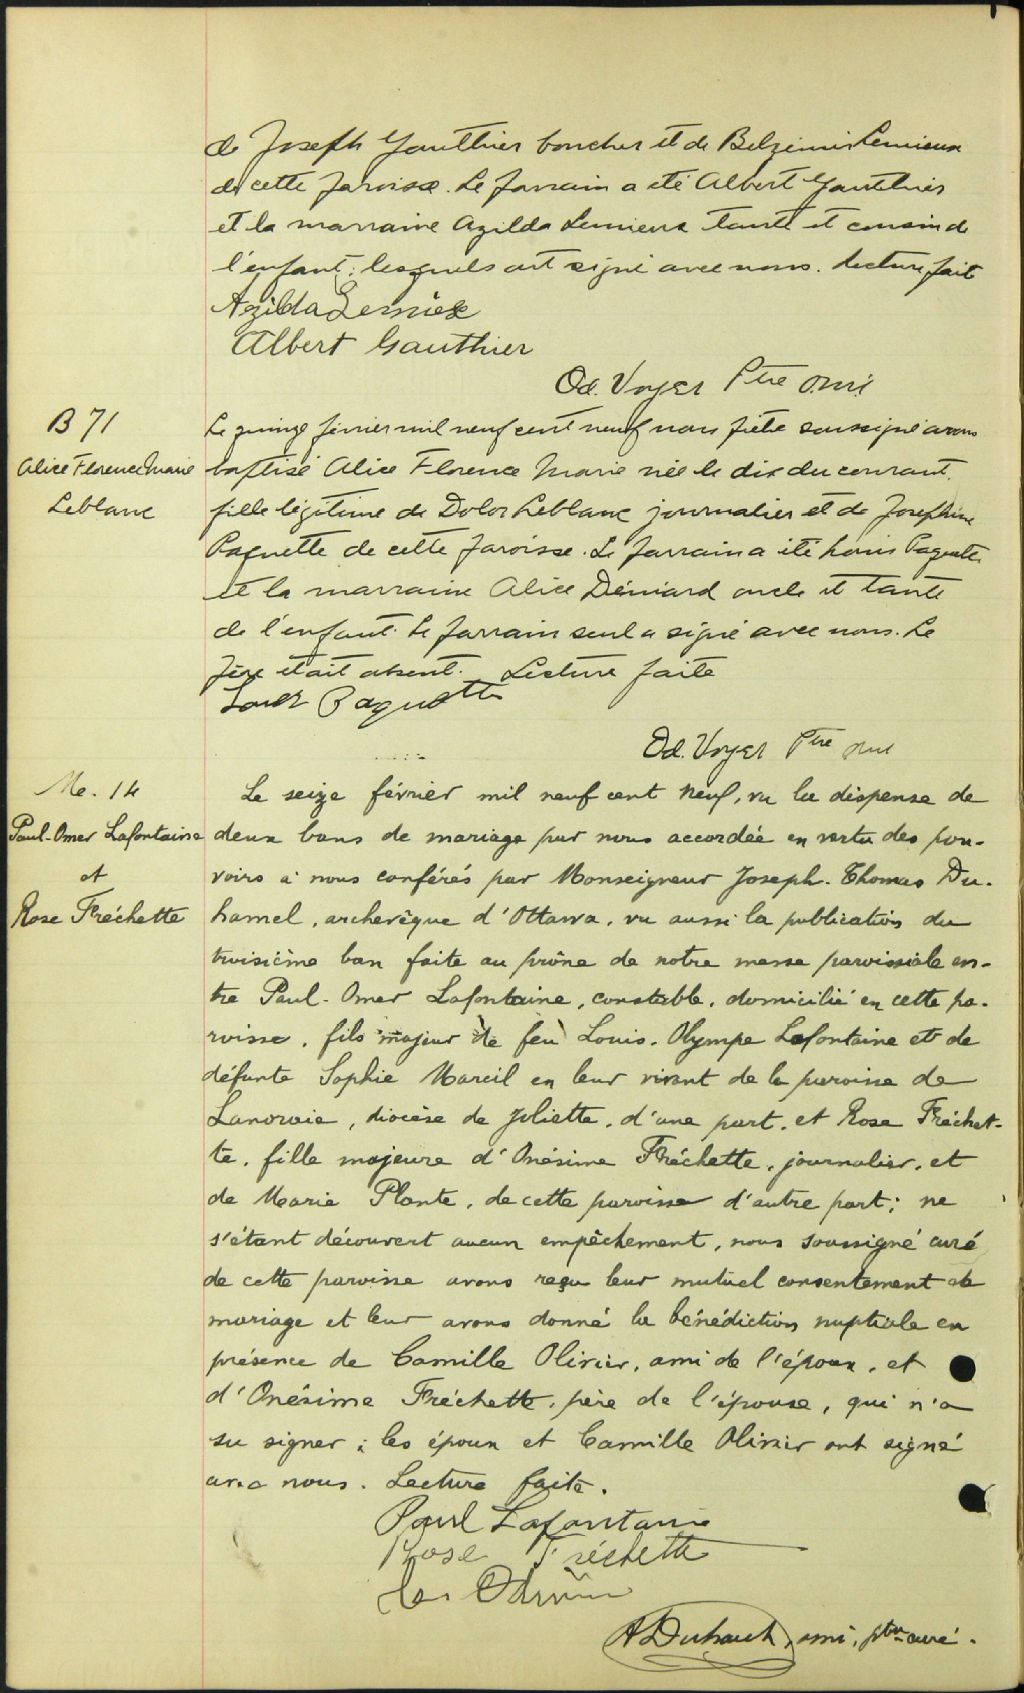 de Joseph Gauthier boucher et de Belzemir Lemieux
de cette paroisse. Le parrain a été Albert Gauthier
et la marraine Azilda Lemieux tante et cousin de
l'enfant; lesquels ont signé avec nous. Lecture fait
Azilda Lemiex
Albert Gauthier
Od. Voyer Ptre omi
B 71
Alice Florence Marie
Leblanc
Le quinze février mil neuf cent neuf nous prêtre soussigné avons
baptisé Alice Florence Marie née le dix du courant,
fille légitime de Dolor Leblanc journalier et de Josephine
Paquette de cette paroisse. Le parrain a été Louis Paquette
et la marraine Alice Déniard oncle et tante
de l'enfant. Le parrain seul a signé avec nous. Le
père était absent. Lecture faite
Louis Paquette
Od. Voyer Ptre omi
Me. 14
Paul-Omer Lafontaine
et
Rose Fréchette
Le seize février mil neuf cent neuf, vu la dispense de
deux bans de mariage par nous accordée en vertu des pou-
voirs à nous conférés par Monseigneur Joseph-Thomas Du-
hamel, archevêque d'Ottawa, vu aussi la publication du
troisième ban faite au prône de notre messe paroissiale en-
tre Paul-Omer Lafontaine, constable, domicilié en cette pa-
roisse, fils majeur de feu Louis-Olympe Lafontaine et de
défunte Sophie Mareil en leur vivant de la paroisse de
Lanoraie, diocèse de Joliette, d'une part, et Rose Fréchet-
te, fille majeure d'Onésime Fréchette, journalier, et
de Marie Plante, de cette paroisse d'autre part; ne
s'étant découvert aucun empêchement, nous soussigné curé
de cette paroisse avons reçu leur mutuel consentement de
mariage et leur avons donné la bénédiction nuptiale en
présence de Camille Olivier, ami de l'époux, et
d'Onésime Fréchette, père de l'épouse, qui n'a
su signer; les époux et Camille Olivier ont signé
avec nous. Lecture faite.
Paul Lafontaine
Rose Fréchette
omi, ptre curé.